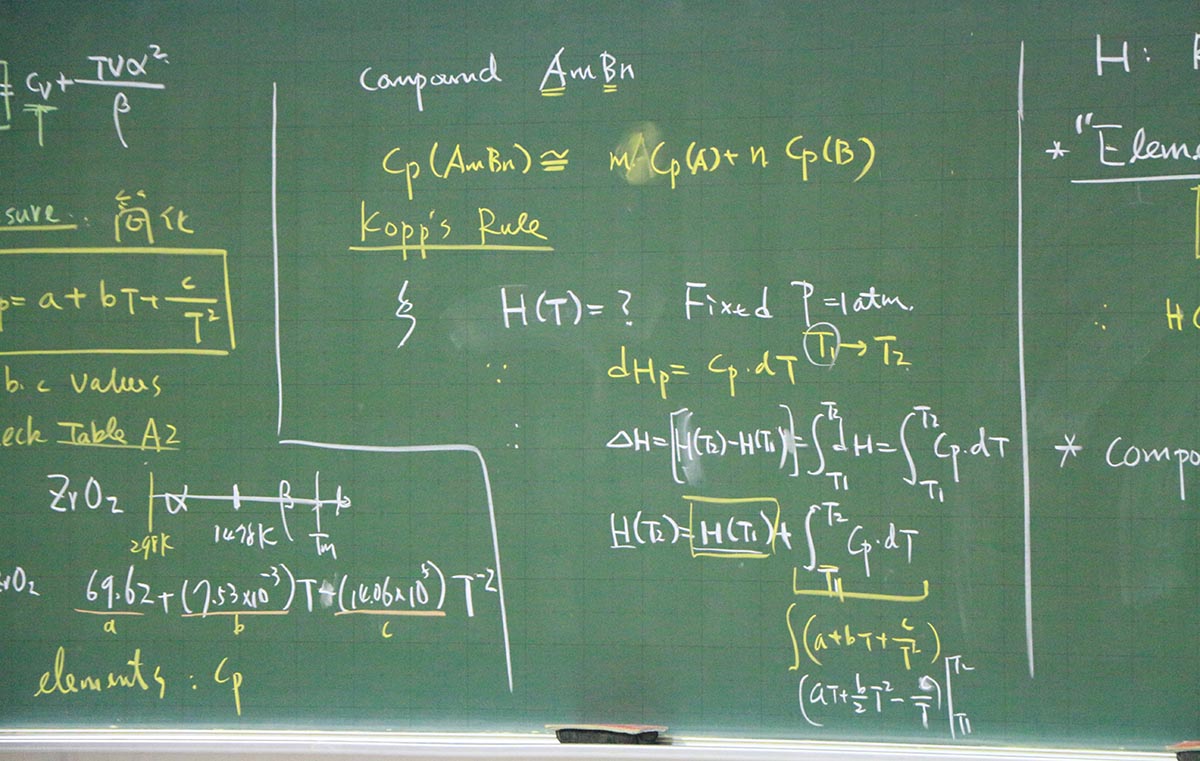 = Cv + TVα² / β
sure :
p = a + bT + c / T²
b. c values
eck Table A2
ZrO₂ α β
298K 1478K Tm
rO₂ 69.62 + (7.53×10⁻³)T - (14.06×10⁵) T⁻²
a b c
elements : Cp
Compound AmBn
Cp(AmBn) ≅ m Cp(A) + n Cp(B)
Kopp's Rule
H(T) = ? Fixed P = 1 atm.
∵ dHp = Cp·dT T₁ → T₂
∴ ΔH = [H(T₂) - H(T₁)] = ∫_T₁^T₂ dH = ∫_T₁^T₂ Cp·dT
H(T₂) = H(T₁) + ∫_T₁^T₂ Cp·dT
∫(a + bT + c/T²)
(aT + b/2 T² - c/T) |_T₁^T₂
H :
* "Eleme
∴ H(
* Compo